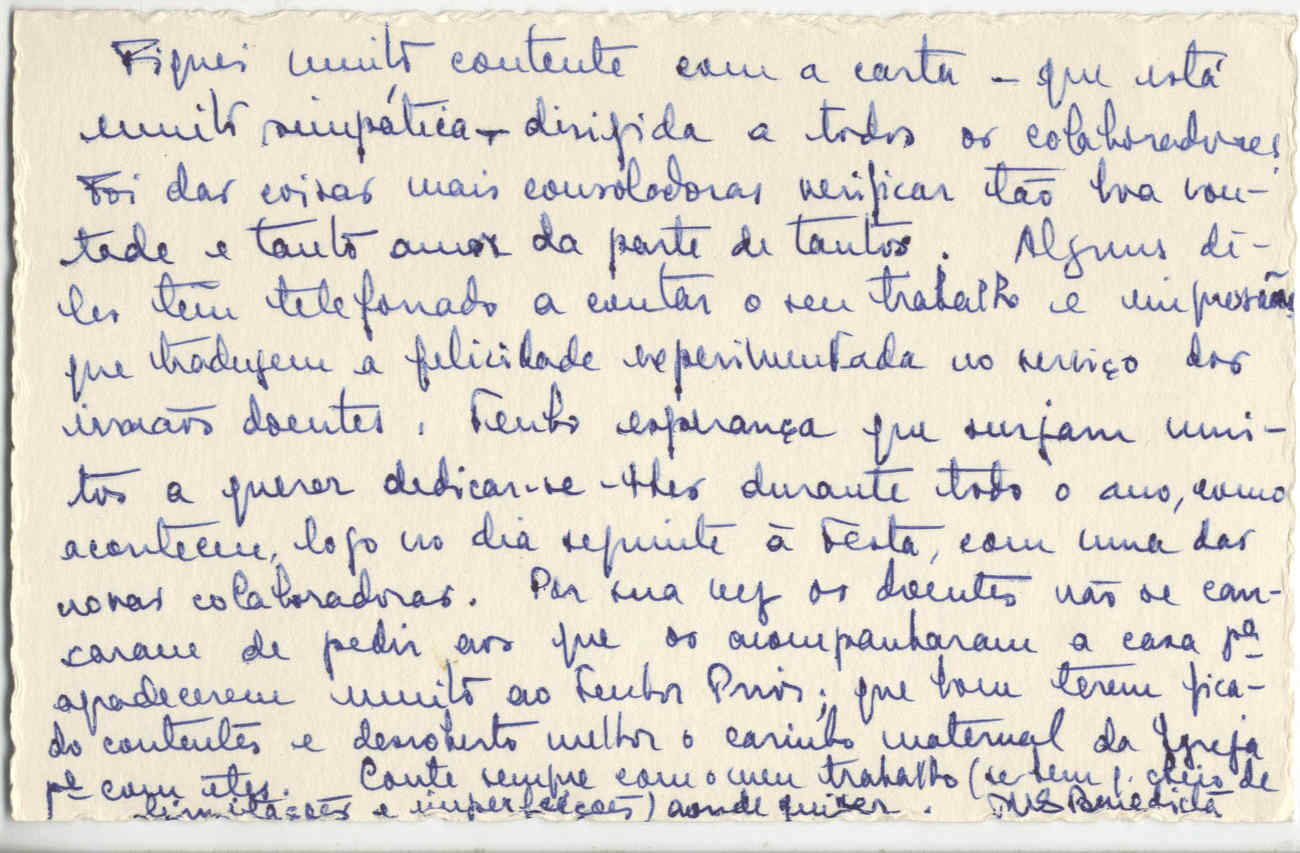 Fiquei muito contente com a carta – que está
muito simpática – dirigida a todos os colaboradores.
Foi das coisas mais consoladoras verificar tão boa von-
tade e tanto amor da parte de tantos. Alguns de-
les têm telefonado a contar o seu trabalho e impressões
que traduzem a felicidade experimentada no serviço dos
irmãos doentes. Tenho esperança que surjam mui-
tos a querer dedicar-se-lhes durante todo o ano, como
aconteceu, logo no dia seguinte à Festa, com uma das
novas colaboradoras. Por sua vez os doentes não se can-
saram de pedir aos que os acompanharam a casa pª
agradecerem muito ao Senhor Prior; que bom terem fica-
do contentes e descoberto melhor o carinho maternal da Igreja
pª com eles. Conte sempre com o meu trabalho (se bem q. cheio de
limitações e imperfeições) aonde quiser. Benedicta